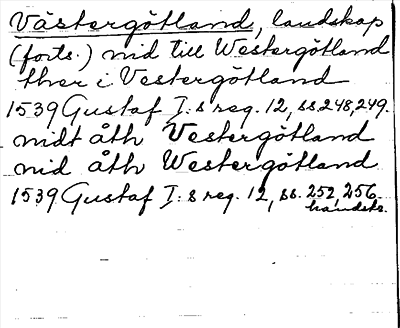 Västergötland, landskap
(forts.) nid till Westergötland
ther i Vestergötland
1539 Gustaf I:s reg. 12, ss 248, 249.
nidt åth Vestergötland
nid åth Westergötland
1539 Gustaf I:s reg. 12, ss. 252, 256.
handskr.